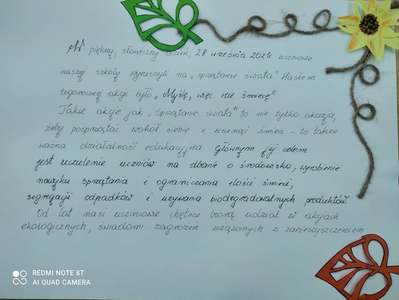 W piękny, słoneczny dzień, 28 września 2021 uczniowie
naszej szkoły wyruszyli na „sprzątanie świata". Hasłem
tegorocznej akcji było „Myślę, więc nie śmiecę"
Takie akcje jak „Sprzątanie świata" to nie tylko okazja,
żeby posprzątać wokół siebie i usunąć śmieci - to także
ważna działalność edukacyjna głównym jej celem
jest uczulenie uczniów na dbanie o środowisko, wyrobienie
nawyku sprzątania i ograniczania ilości śmieci,
segregacji odpadków i używania biodegradowalnych produktów.
Od lat nasi uczniowie chętnie biorą udział w akcjach
ekologicznych, świadomi zagrożeń związanych z zanieczyszczeniem
REDMI NOTE 8T
AI QUAD CAMERA